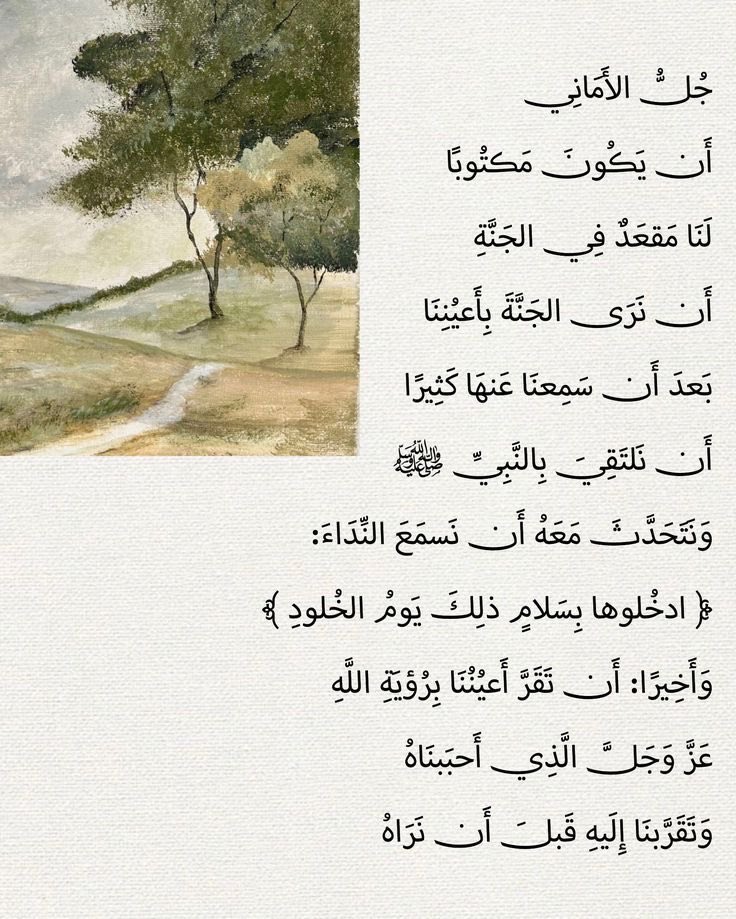 جُلُّ الأَمَانِي
أَن يَكُونَ مَكتُوبًا
لَنَا مَقعَدٌ فِي الجَنَّةِ
أَن نَرَى الجَنَّةَ بِأَعيُنِنَا
بَعدَ أَن سَمِعنَا عَنهَا كَثِيرًا
أَن نَلتَقِيَ بِالنَّبِيِّ ﷺ
وَنَتَحَدَّثَ مَعَهُ أَن نَسمَعَ النِّدَاءَ:
﴿ ادخُلوها بِسَلامٍ ذلِكَ يَومُ الخُلودِ ﴾
وَأَخِيرًا: أَن تَقَرَّ أَعيُنُنَا بِرُؤيَةِ اللَّهِ
عَزَّ وَجَلَّ الَّذِي أَحبَبنَاهُ
وَتَقَرَّبنَا إِلَيهِ قَبلَ أَن نَرَاهُ